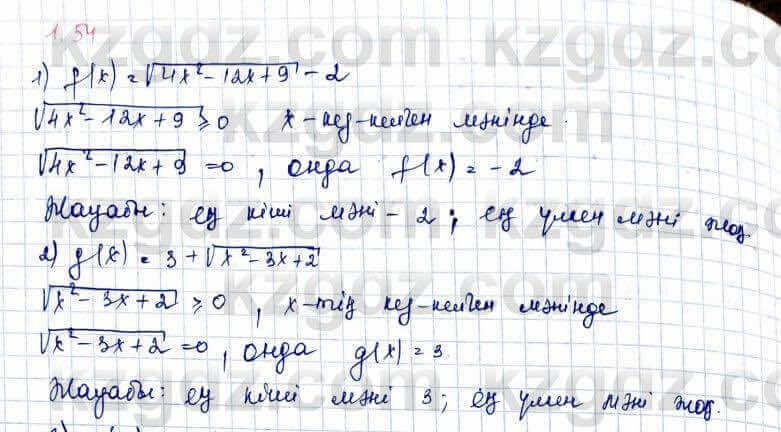 1.54
1) f(x) = √4x² - 12x + 9 - 2
√4x² - 12x + 9 ≥ 0 x - кез-келген мәнінде.
√4x² - 12x + 9 = 0, онда f(x) = -2
Жауабы: ең кіші мәні - 2; ең үлкен мәні жоқ.
2) g(x) = 3 + √x² - 3x + 2
√x² - 3x + 2 ≥ 0, x-тің кез-келген мәнінде
√x² - 3x + 2 = 0, онда g(x) = 3
Жауабы: ең кіші мәні 3; ең үлкен мәні жоқ.
kzgdz.com